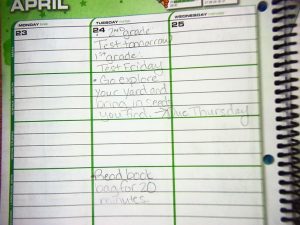 APRIL
MONDAY
TUESDAY
WEDNESDAY
23
24
25
• 2nd grade
Test tomorrow
1st grade
Test Friday
• Go explore
your yard and
bring in seeds
you find. → Due Thursday
• Read book
bag for 20
minutes.